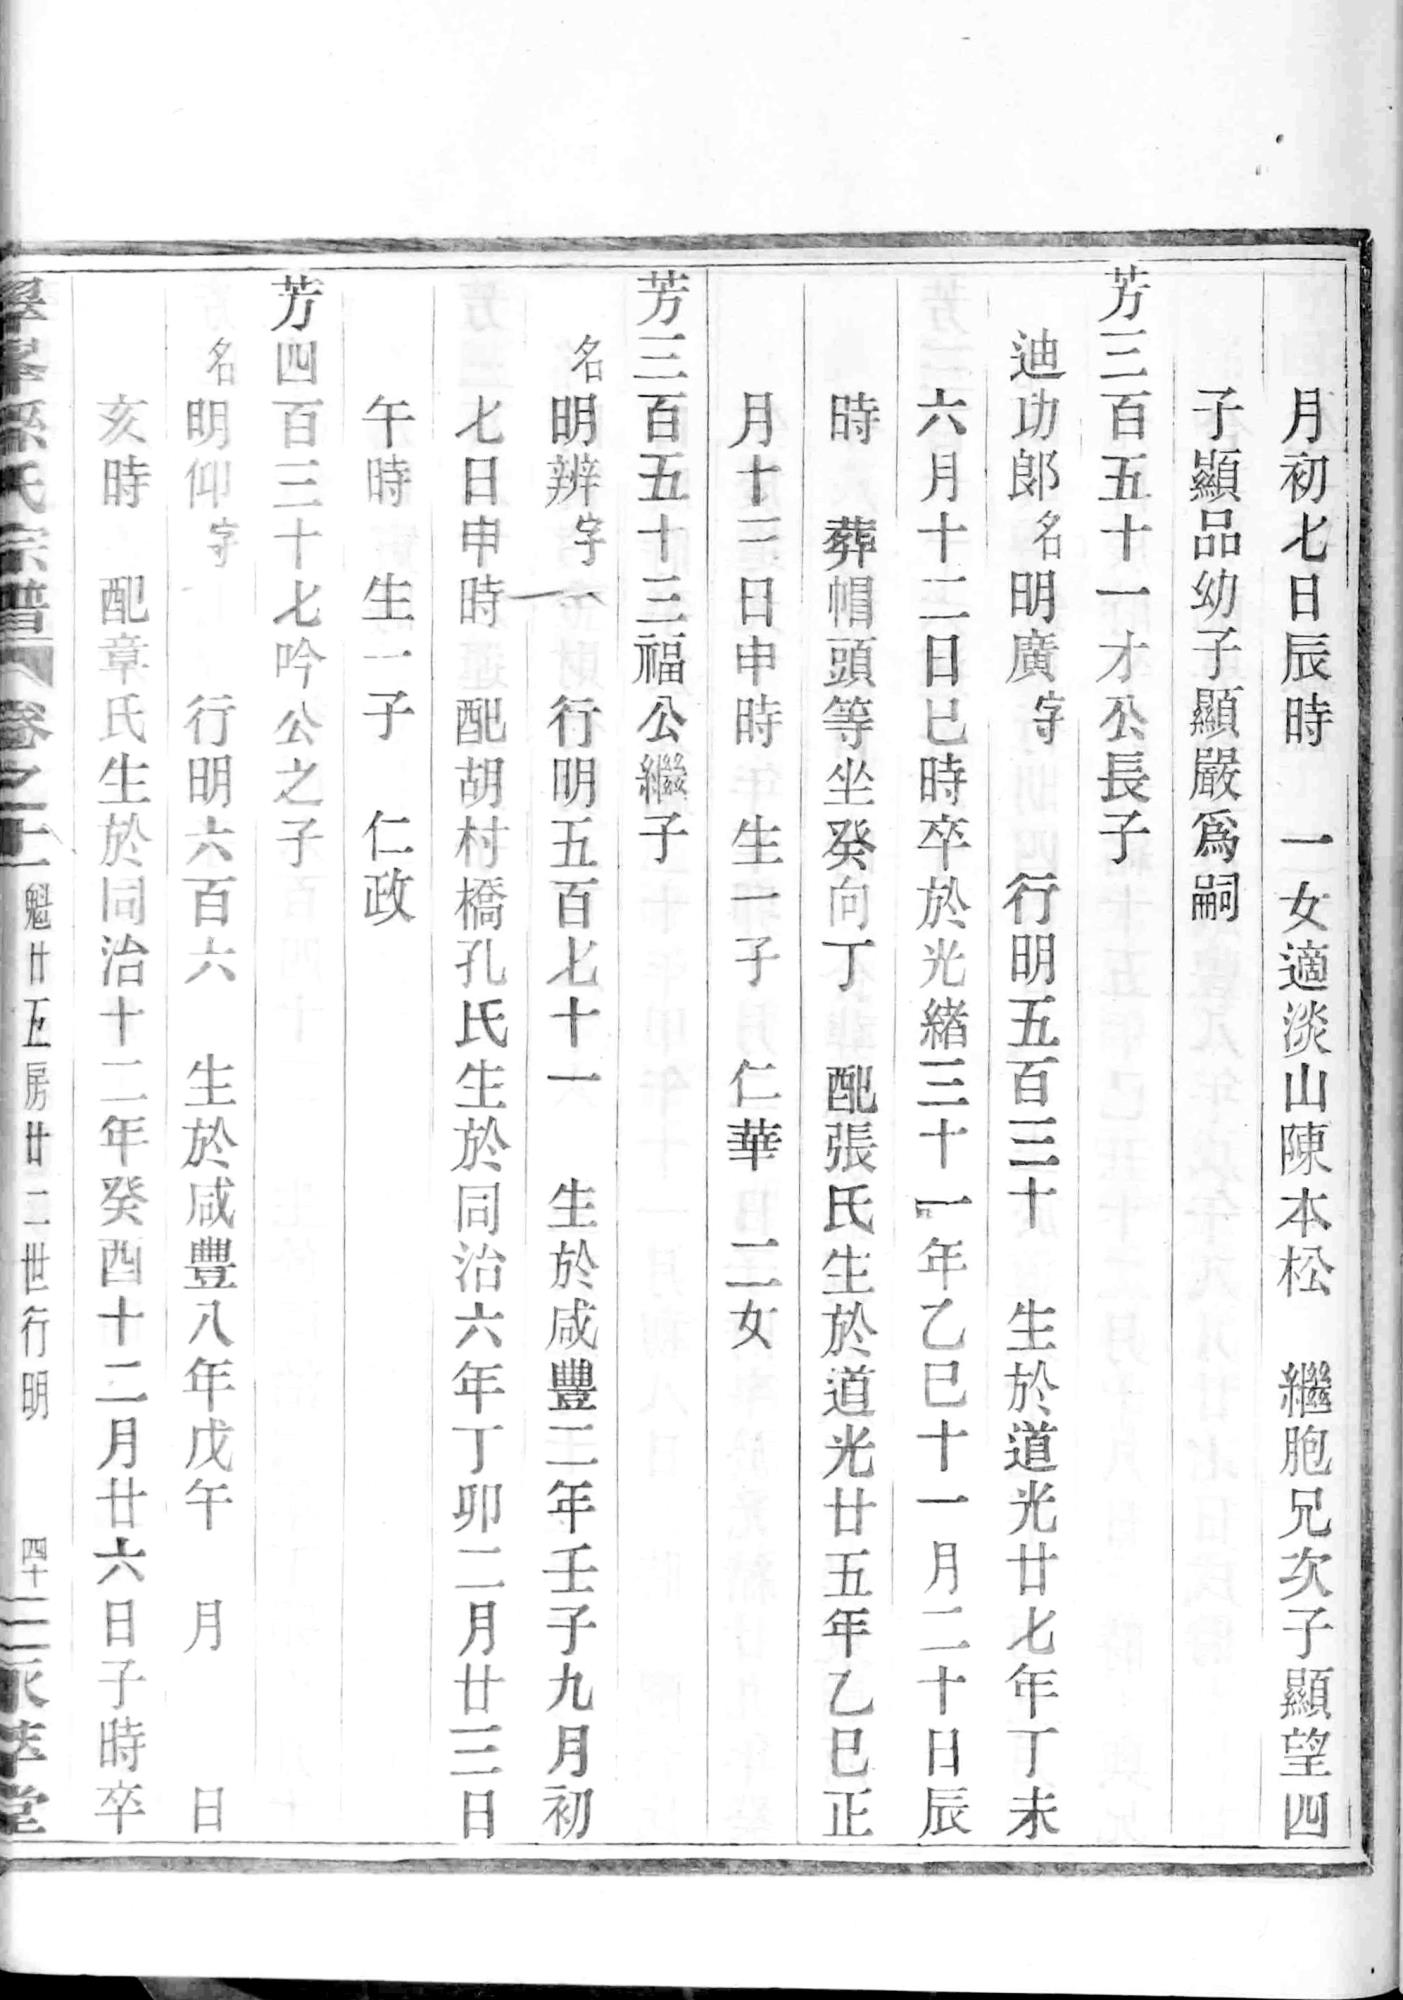 月初七日辰時　一女適淡山陳本松　繼胞兄次子顯望四
子顯品幼子顯嚴爲嗣
芳三百五十一才公長子
迪功郎名明廣字　　行明五百三十　生於道光廿七年丁未
六月十二日巳時卒於光緒三十一年乙巳十一月二十日辰
時　葬帽頭等坐癸向丁　配張氏生於道光廿五年乙巳正
月十三日申時　生一子　仁華　二女
芳三百五十三福公繼子
名明辨字　　行明五百七十一　生於咸豐二年壬子九月初
七日申時　配胡村橋孔氏生於同治六年丁卯二月廿三日
午時　生一子　仁政
芳四百三十七吟公之子
名明仰字　　行明六百六　生於咸豐八年戊午　月　　日
亥時　配章氏生於同治十二年癸酉十二月廿六日子時卒
孫氏宗譜　卷之十一　魁廿五房廿二世行明　四十二　萃堂